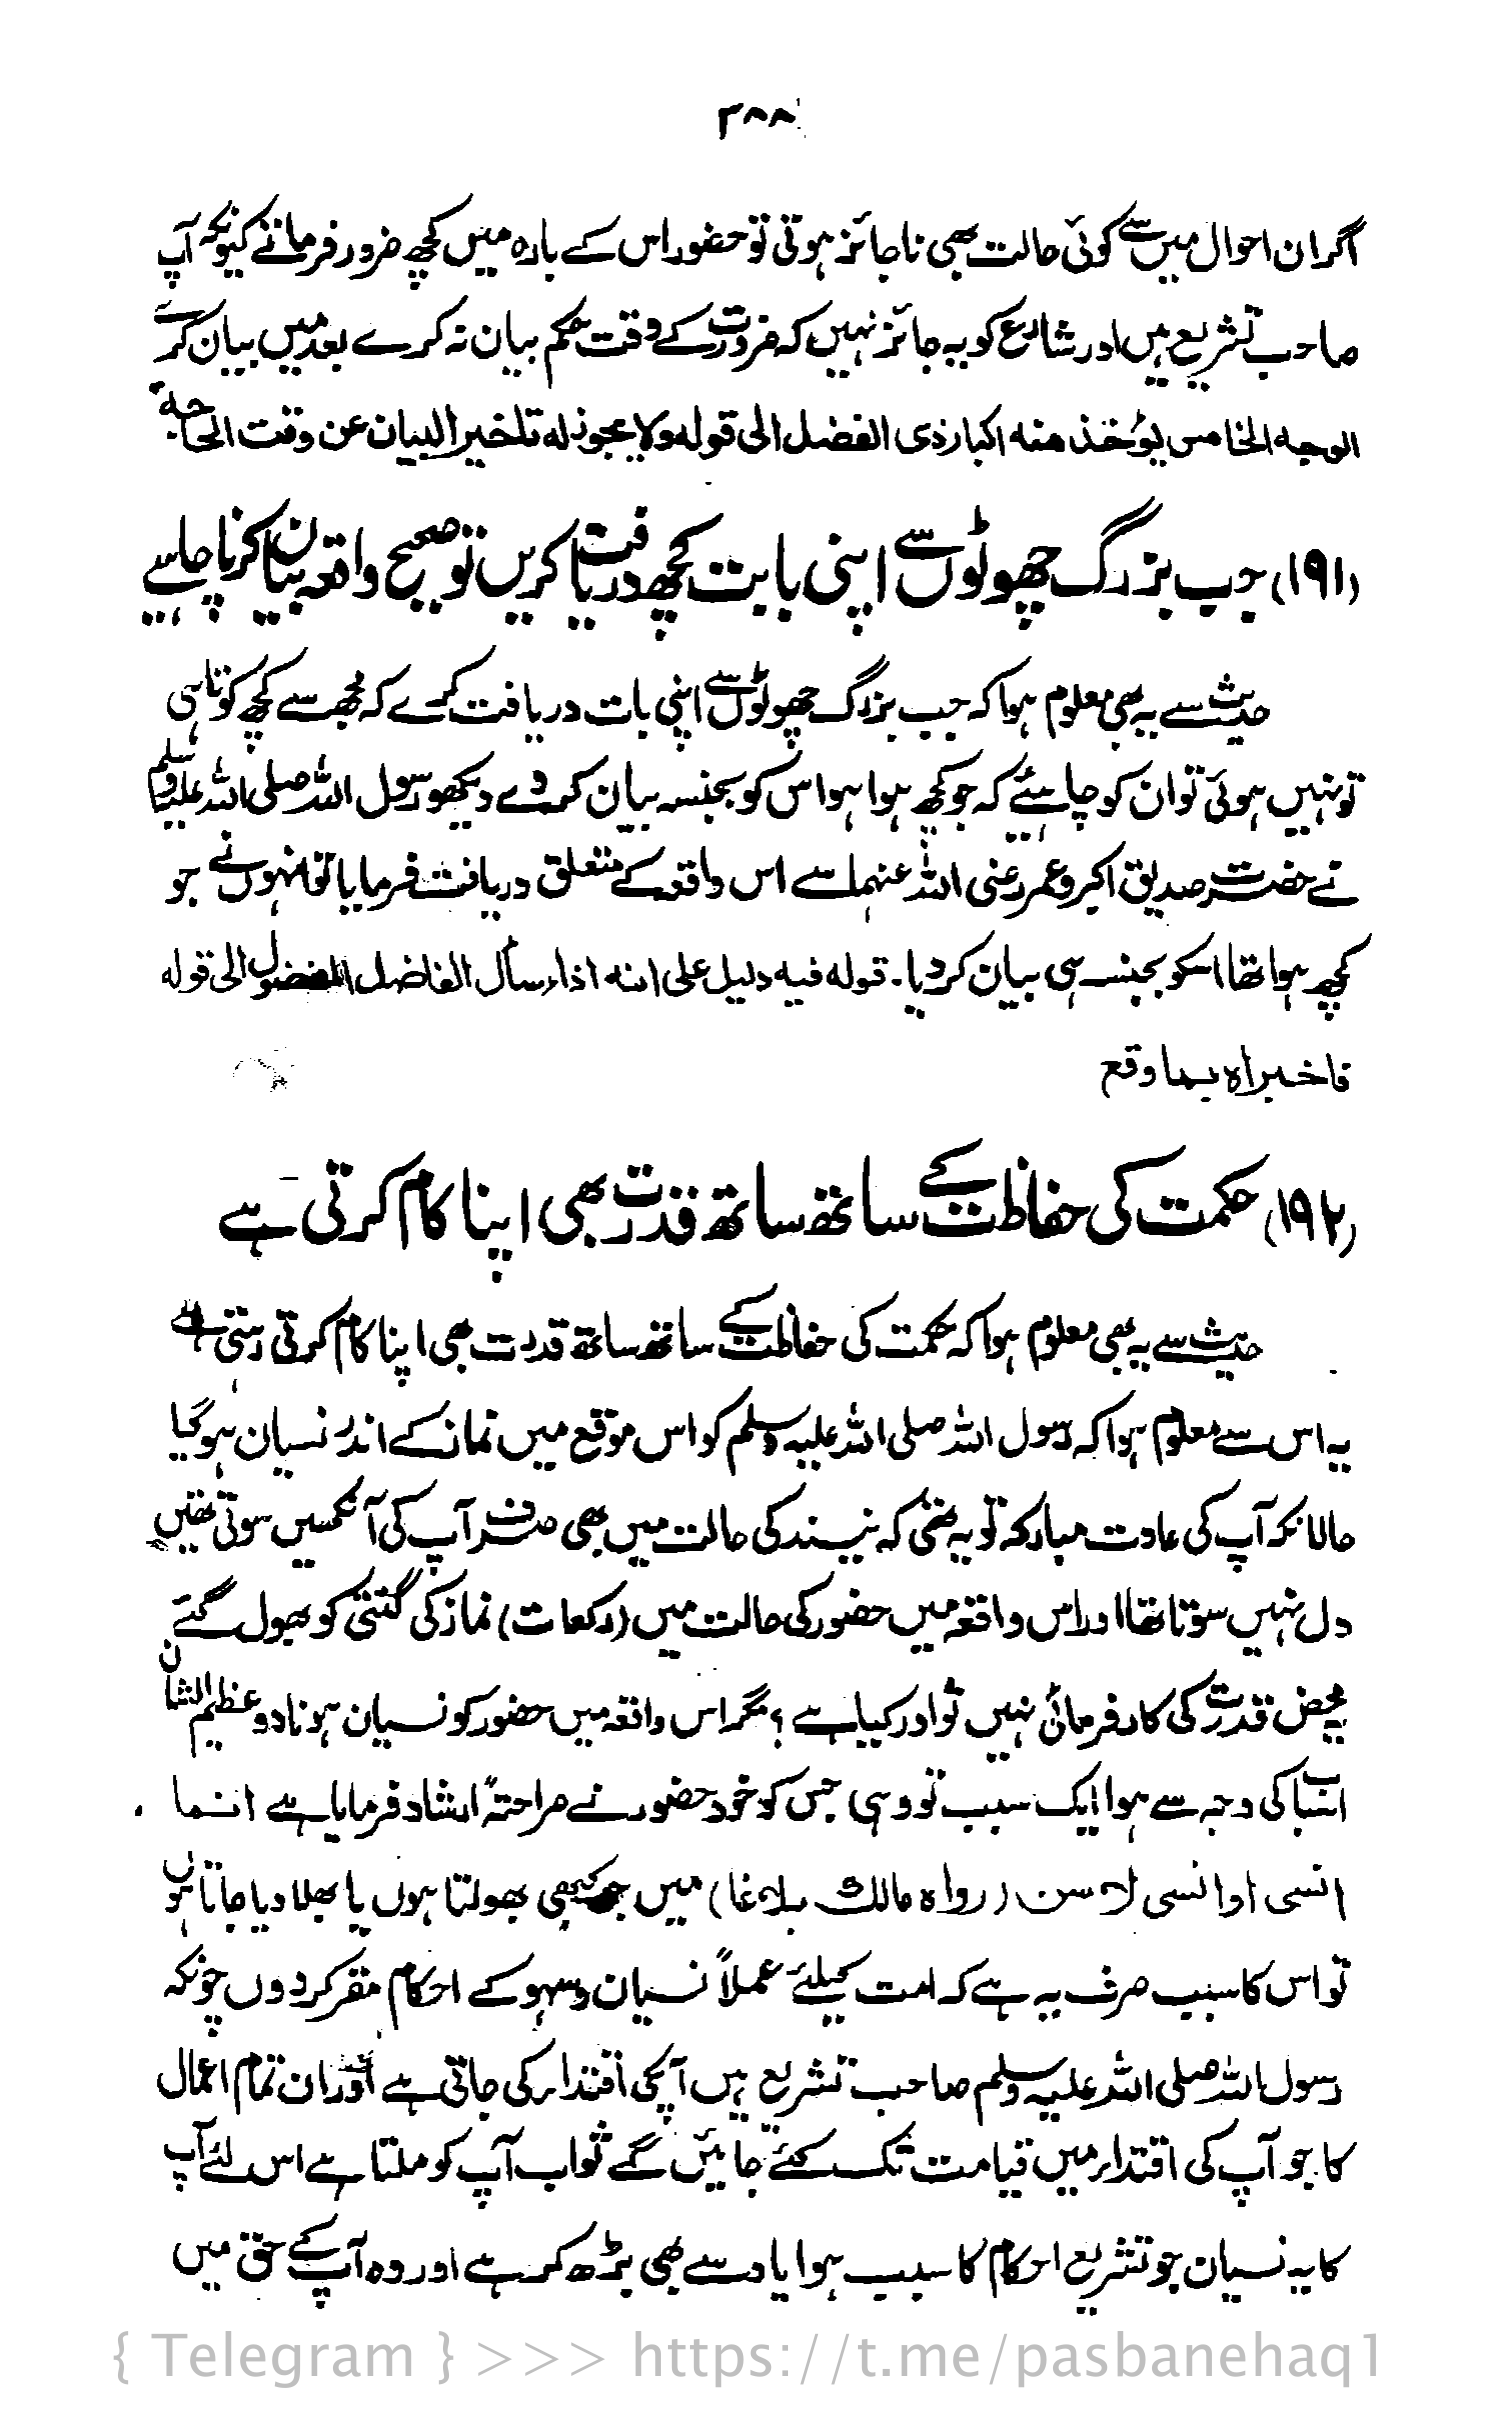 ۳۸۸
اگر ان احوال میں سے کوئی حالت بھی ناجائز ہوتی تو حضور اس کے بارہ میں کچھ ضرور فرماتے کیونکہ آپ
صاحب تشریع ہیں اور شارع کو یہ جائز نہیں کہ ضرورت کے وقت حکم بیان نہ کرے بعد میں بیان کرے
الوجہ الخامس یؤخذ منہ اکبار ذی الفضل الی قولہ ولا یجوز لہ تاخیر البیان عن وقت الحاجۃ
(۱۹۱) جب بزرگ چھوٹوں سے اپنی بابت کچھ دریافت کریں تو صحیح واقعہ بیان کرنا چاہیے
حدیث سے یہ بھی معلوم ہوا کہ جب بزرگ چھوٹوں سے اپنی بات دریافت کرے کہ مجھ سے کچھ کوتاہی
تو نہیں ہوئی تو ان کو چاہئیے کہ جو کچھ ہوا ہو اس کو بجنسہ بیان کر دے دیکھو رسول اللہ صلی اللہ علیہ وسلم
نے حضرت صدیق اکبر و عمر رضی اللہ عنہما سے اس واقعہ کے متعلق دریافت فرمایا تو انہوں نے جو
کچھ ہوا تھا اسکو بجنسہ ہی بیان کر دیا۔ قولہ فیہ دلیل علی انہ اذا سأل الفاضل المفضول الی قولہ
فاخبراہ بما وقع
(۱۹۲) حکمت کی حفاظت کے ساتھ ساتھ قدرت بھی اپنا کام کرتی ہے
حدیث سے یہ بھی معلوم ہوا کہ حکمت کی حفاظت کے ساتھ ساتھ قدرت بھی اپنا کام کرتی رہتی ہے
یہ اس سے معلوم ہوا کہ رسول اللہ صلی اللہ علیہ وسلم کو اس موقع میں نماز کے اندر نسیان ہو گیا
حالانکہ آپ کی عادت مبارکہ تو یہ تھی کہ نیند کی حالت میں بھی صرف آپ کی آنکھیں سوتی تھیں
دل نہیں سوتا تھا اور اس واقعہ میں حضور کی حالت میں (رکعات) نماز کی گنتی کو بھول گئے
یہ محض قدرت کی کارفرمائی نہیں تو اور کیا ہے ؟ مگر اس واقعہ میں حضور کو نسیان ہونا دو عظیم الشان
اسباب کی وجہ سے ہوا ایک سبب تو وہی جس کو خود حضور نے صراحتہً ارشاد فرمایا ہے انما
انسی او انسی لاسن (رواہ مالک بلاغا) میں جو کبھی بھولتا ہوں یا بھلا دیا جاتا ہوں
تو اس کا سبب صرف یہ ہے کہ امت کیلئے عملاً نسیان و سہو کے احکام مقرر کر دوں چونکہ
رسول اللہ صلی اللہ علیہ وسلم صاحب تشریع ہیں آپکی اقتدار کی جاتی ہے اور ان تمام اعمال
کا جو آپ کی اقتدار میں قیامت تک کئے جائیں گے ثواب آپ کو ملتا ہے اس لئے آپ
کا یہ نسیان جو تشریع احکام کا سبب ہوا یاد سے بھی بڑھ کر ہے اور وہ آپ کے حق میں
{ Telegram } >>> https://t.me/pasbanehaq1